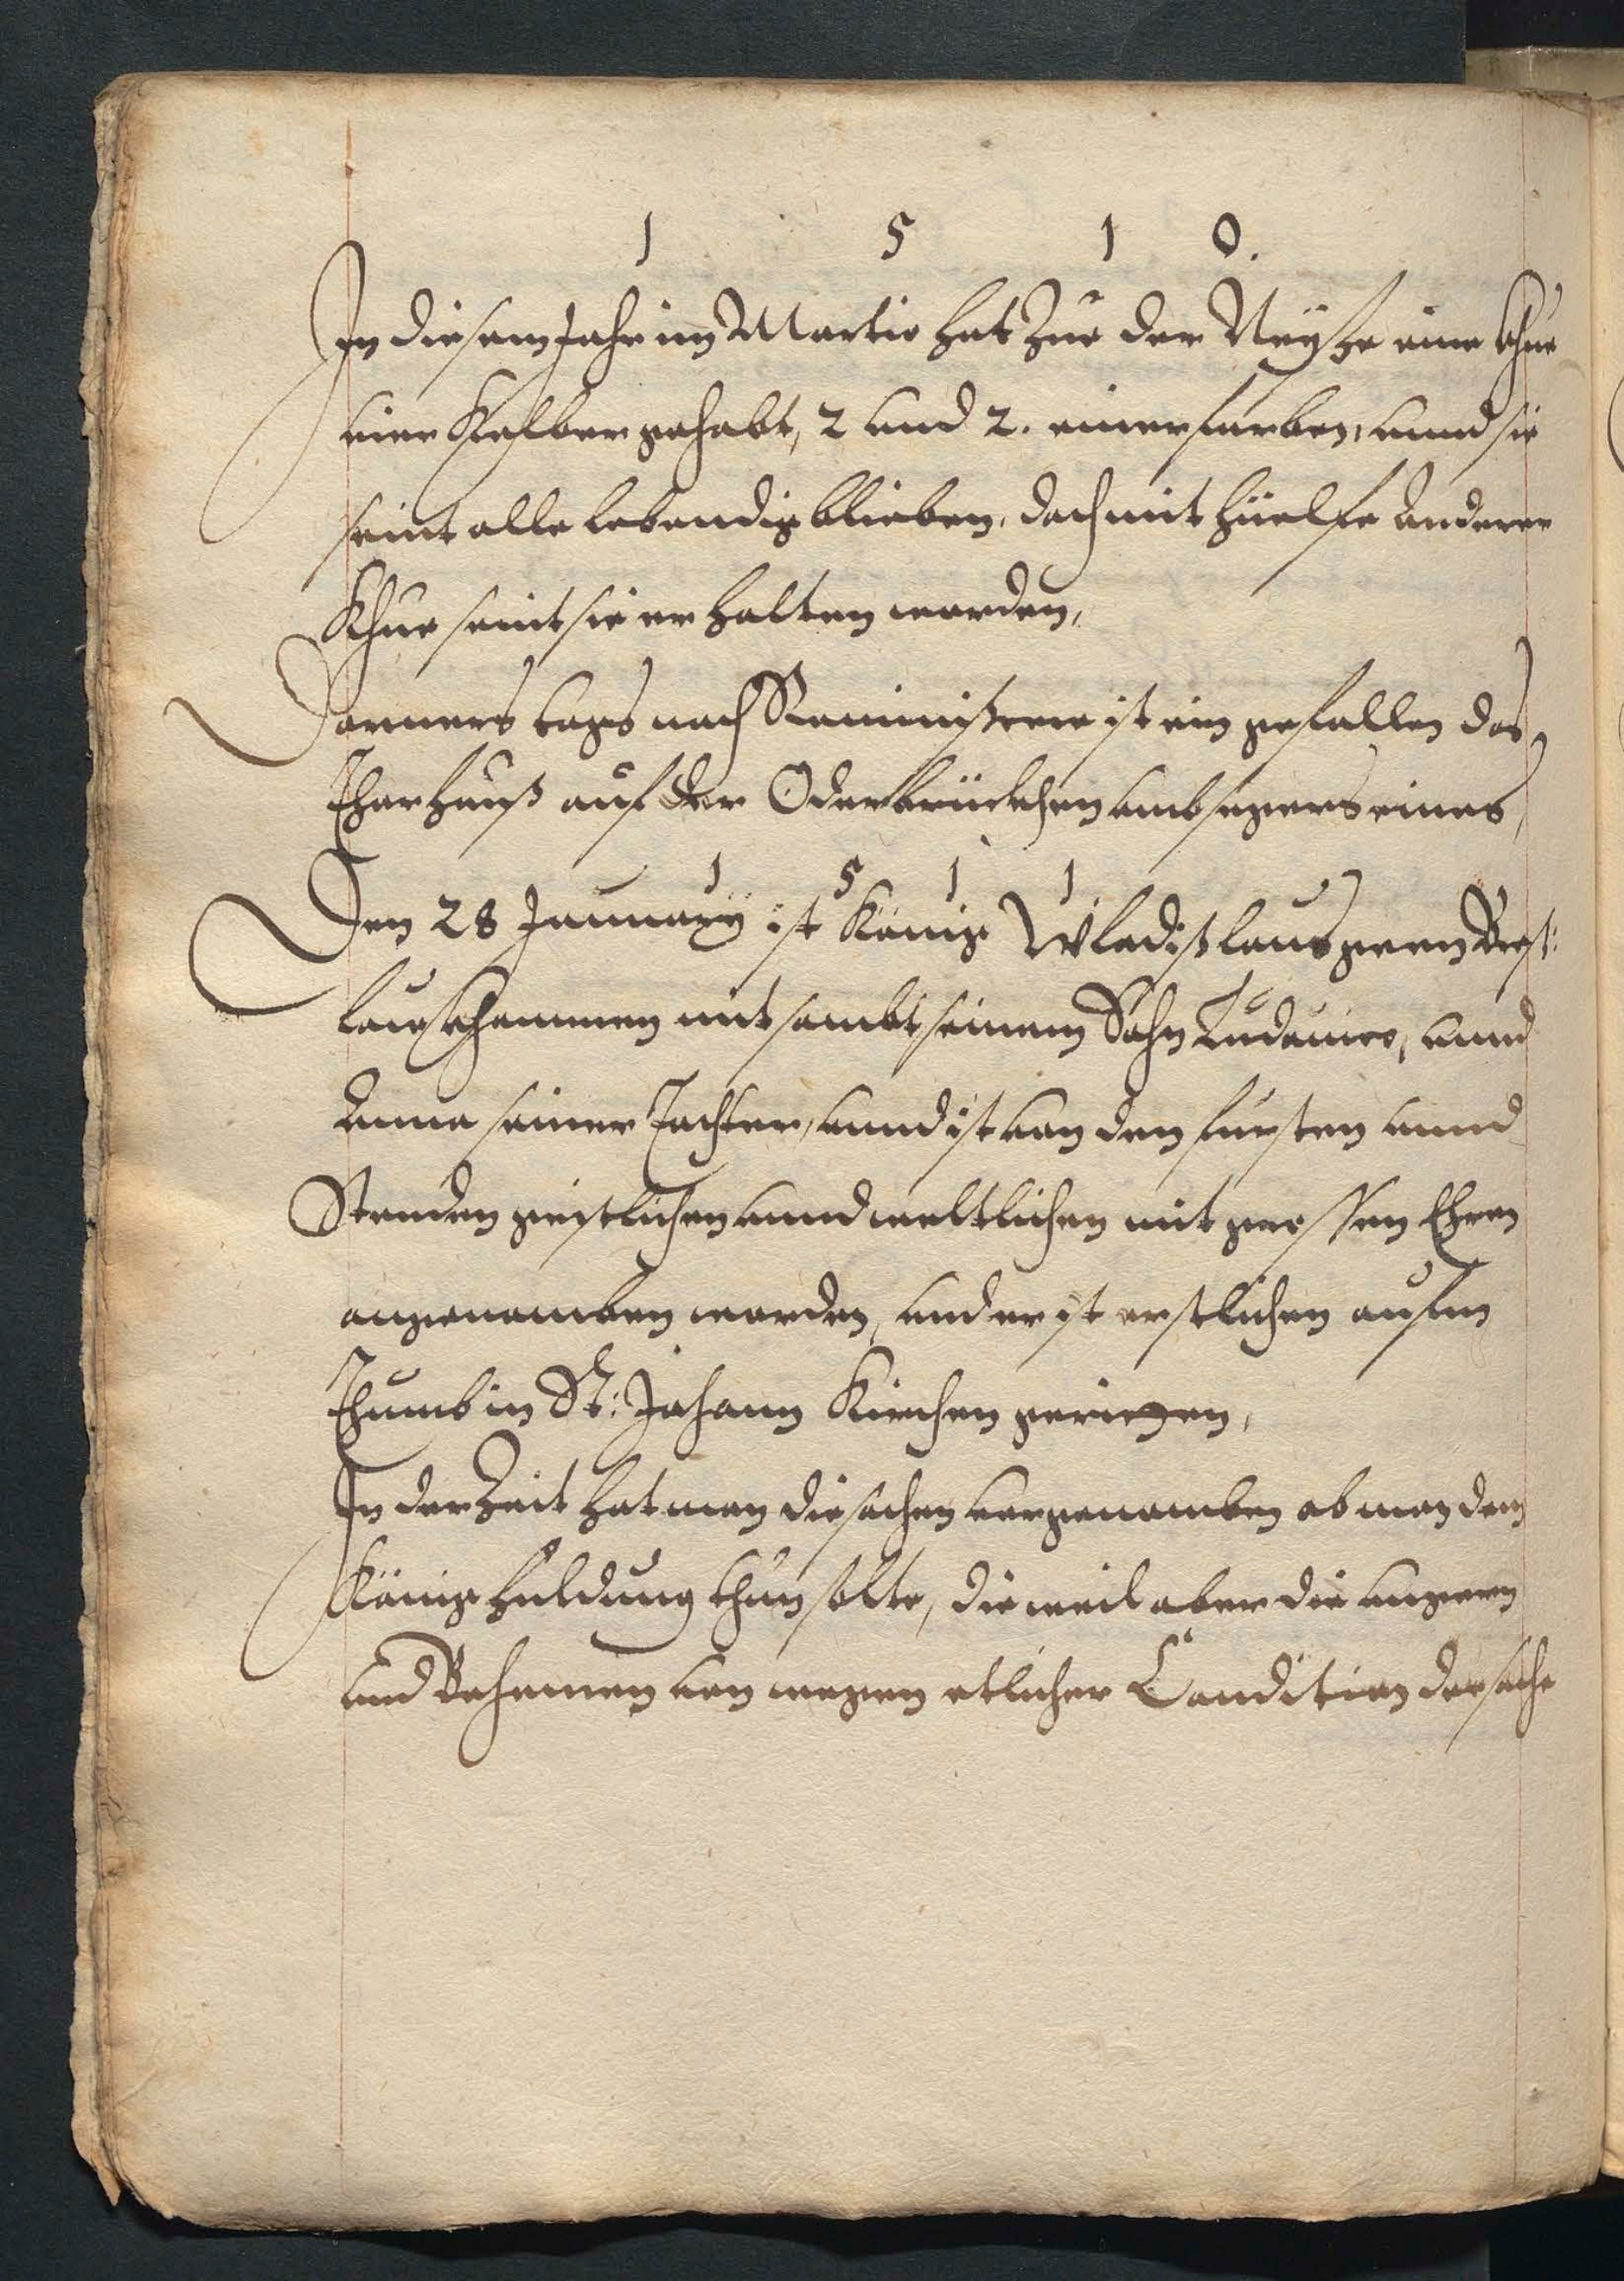 1 5 1 0.
In diesem Jahr im Martio hat Zue der Neyße eine Khue
vier Kelber gehabt, 2 und 2. einer farben, unnd sie
seint alle lebendig blieben, doch mit hüelffe anderer
Khue seint sie erhalten worden,
Donnerstags nach Reminiscere ist ein gefallen das
Thorhauß auf der Oderbrückhen umb segers eines,
1 5 1 1
Den 28 Januarÿ ist König Wladißlaus genn Breß:
lau khommen mit sambt seinem Sohn Ludouico, unnd
Anna seiner Tochter, unnd ist von den fursten unnd
Stenden geistlichen unnd weltlichen mit grossen Ehren
angenomben worden, und er ist erstlichen aufm
Thumb in St: Johann Kirchen geriezen,
In der Zeit hat man die sachen vorgenomben ob man dem
König huldung thun solte, die weil aber die ungern
und Behemen von wegen etlicher Condition der sache